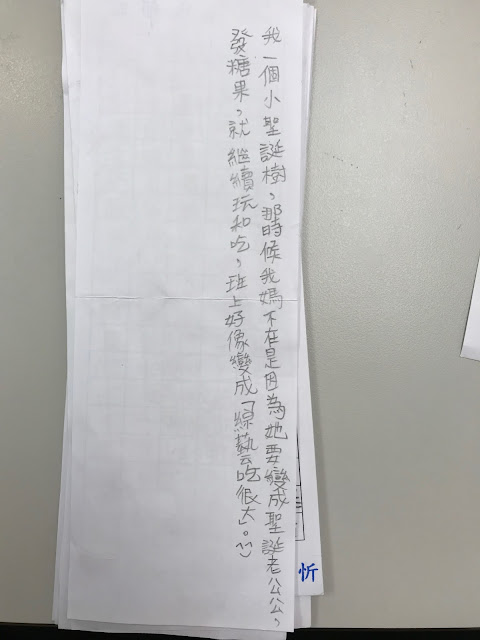 我一個小聖誕樹，那時候我媽不在是因為她要變成聖誕老公公，
發糖果，就繼續玩和吃，班上好像變成「綜藝吃很大」。^_^)
忻